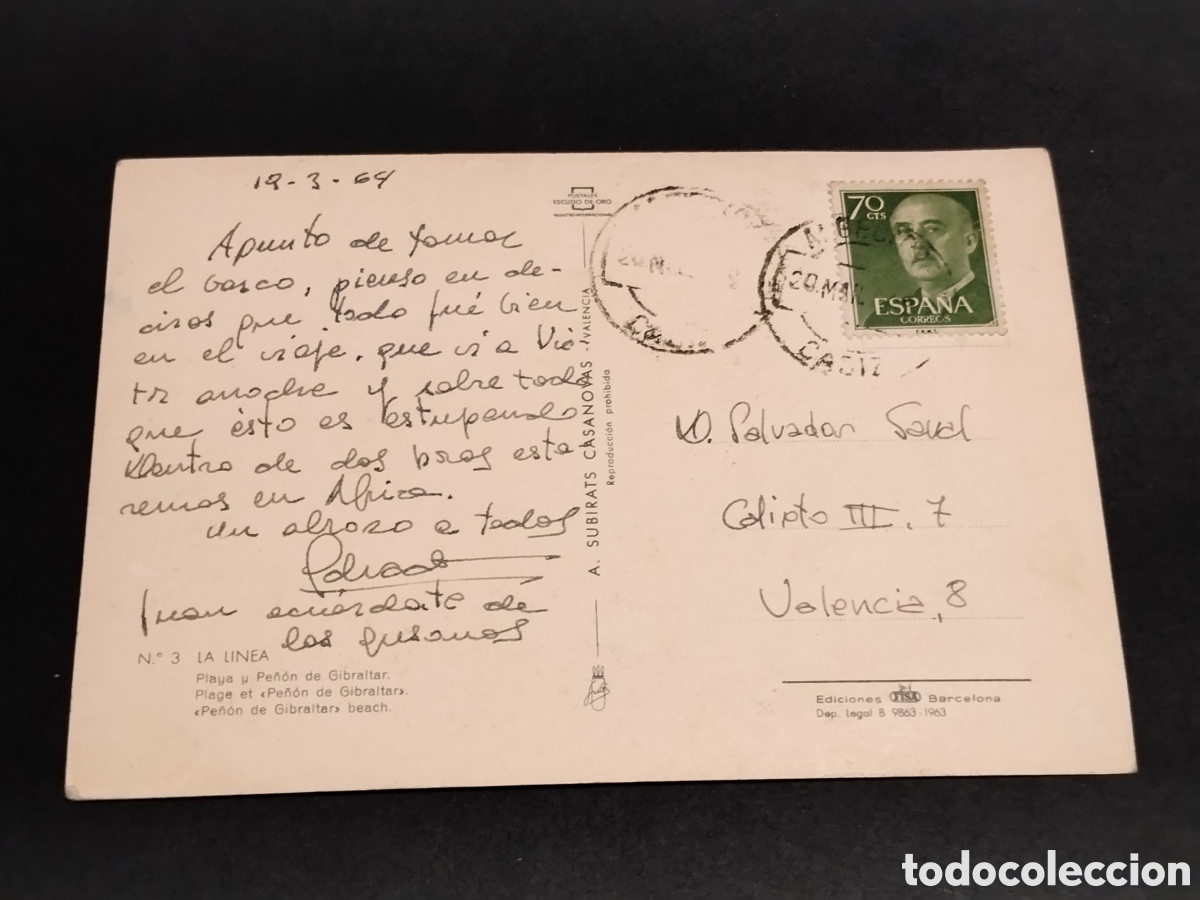 19-3-64
Apunto de tomar
el barco, pienso en de-
ciros que todo fué bien
en el viaje, que vi a Vic
tr anoche y sobre todo
que ésto es estupendo
Dentro de dos horas esta
remos en Africa.
un abrazo a todos
Juan acuérdate de
los gusanos
N.° 3 LA LINEA
Playa y Peñón de Gibraltar.
Plage et «Peñón de Gibraltar».
«Peñón de Gibraltar» beach.
POSTALES
ESCUDO DE ORO
REGISTRO INTERNACIONAL
A. SUBIRATS CASANOVAS - VALENCIA
Reproducción prohibida
20 MAR
ALGECIRAS
20.MAR.
CADIZ
70
CTS
ESPAÑA
CORREOS
F.N.M.T.
D. Salvador Saval
Calixto III, 7
Valencia, 8
Ediciones FISA Barcelona
Dep. Legal B 9863-1963
todocoleccion